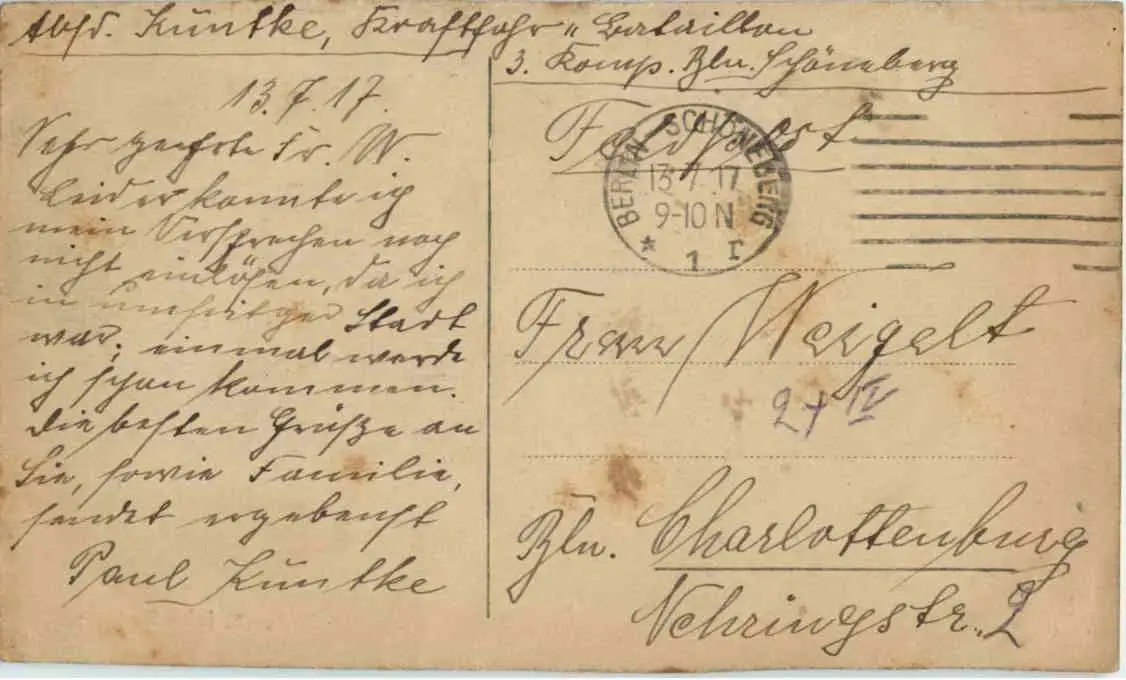 Absd. Küntke, Kraftfahr-Bataillon
3. Komp. Bln. Schöneberg
13.7.17.
Sehr geehrte Fr. W.
Leider konnte ich
mein Versprechen noch
nicht einlösen, da ich
in Stadt
war; einmal werde
ich schon kommen.
Die besten Grüße an
Sie, sowie Familie,
sendet ergebenst
Paul Küntke
Feldpost
BERLIN-SCHÖNEBERG
13.7.17
9-10 N
* 1 r
Frau Weigelt
24 IV
Bln. Charlottenburg
Nehringstr. 2